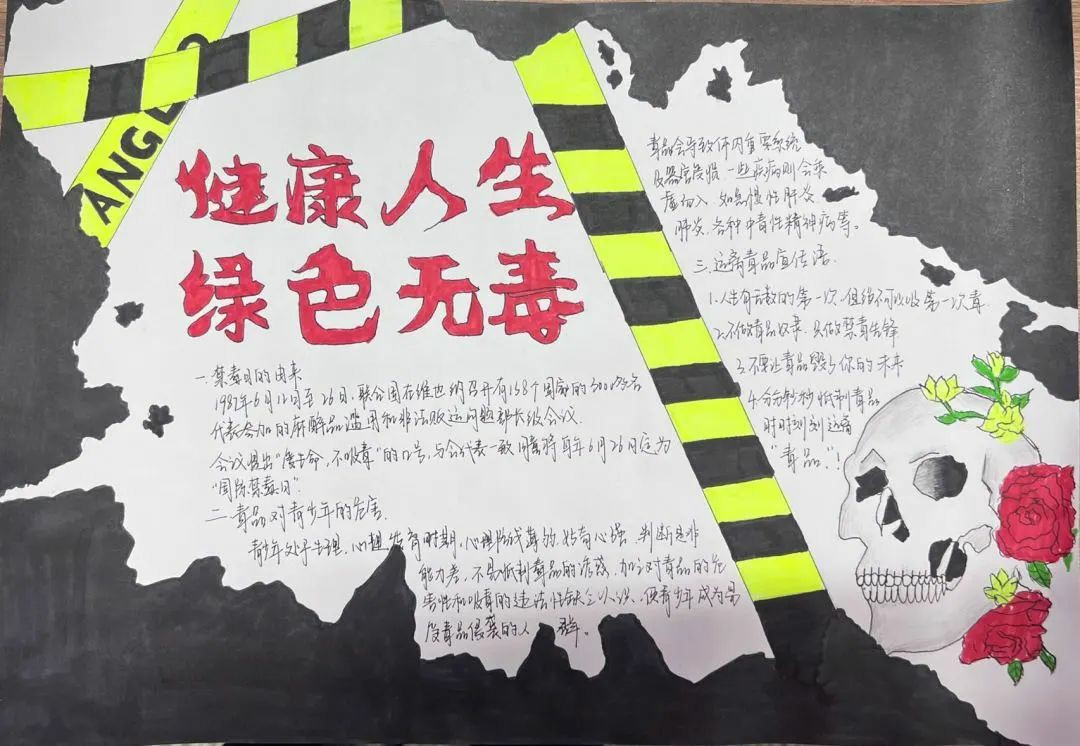 ANGE
健康人生
绿色无毒
一.禁毒日的由来
1987年6月12日至26日.联合国在维也纳召开有138个国家的3000多名
代表参加的麻醉品滥用和非法贩运问题部长级会议.
会议提出"爱生命,不吸毒"的口号,与会代表一致同意将每年6月26日定为
"国际禁毒日".
二.毒品对青少年的危害.
青少年处于生理,心理发育时期,心理防线薄弱,好奇心强.判断是非
能力差,不易抵制毒品的诱惑.加之对毒品的危
害性和吸毒的违法性缺乏认识.使青少年成为易
受毒品侵袭的人群。
毒品会导致体内重要系统
及器官受损.一些疾病则会乘
虚而入.如急慢性肝炎
肺炎.各种中毒性精神病等。
三.远离毒品宣传语.
1.人生有无数的第一次.但绝不可以吸第一次毒.
2.不做毒品奴隶.只做禁毒先锋.
3.不要让毒品毁了你的未来
4.分分秒秒抵制毒品
时时刻刻远离
"毒品."!